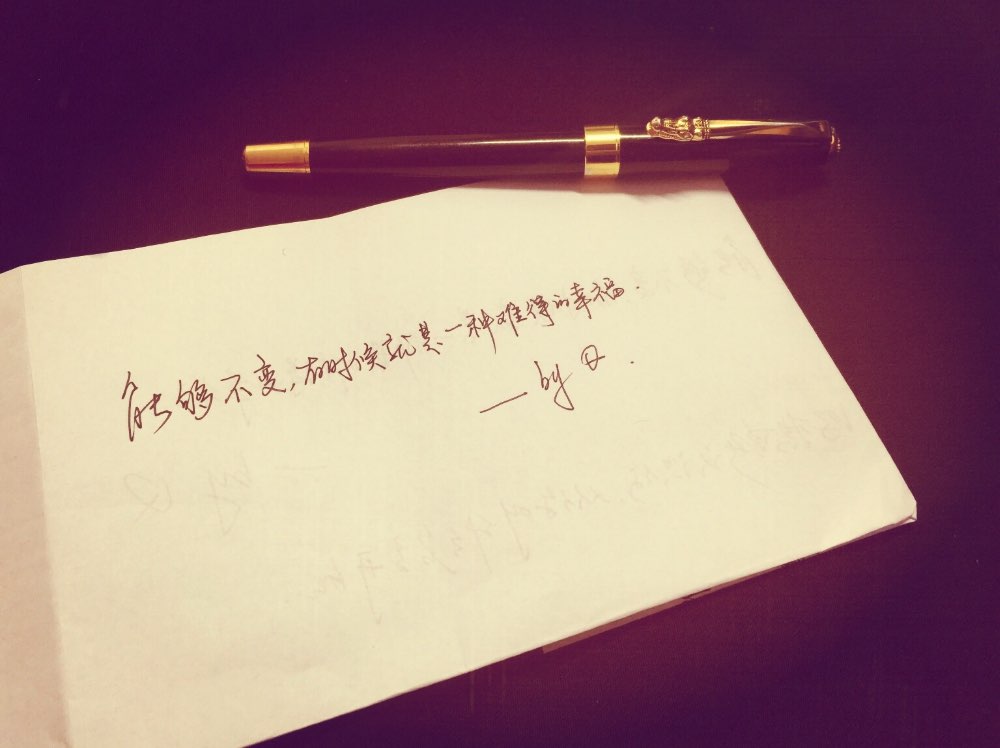 能够不变,有时候就是一种难得的幸福.
——by